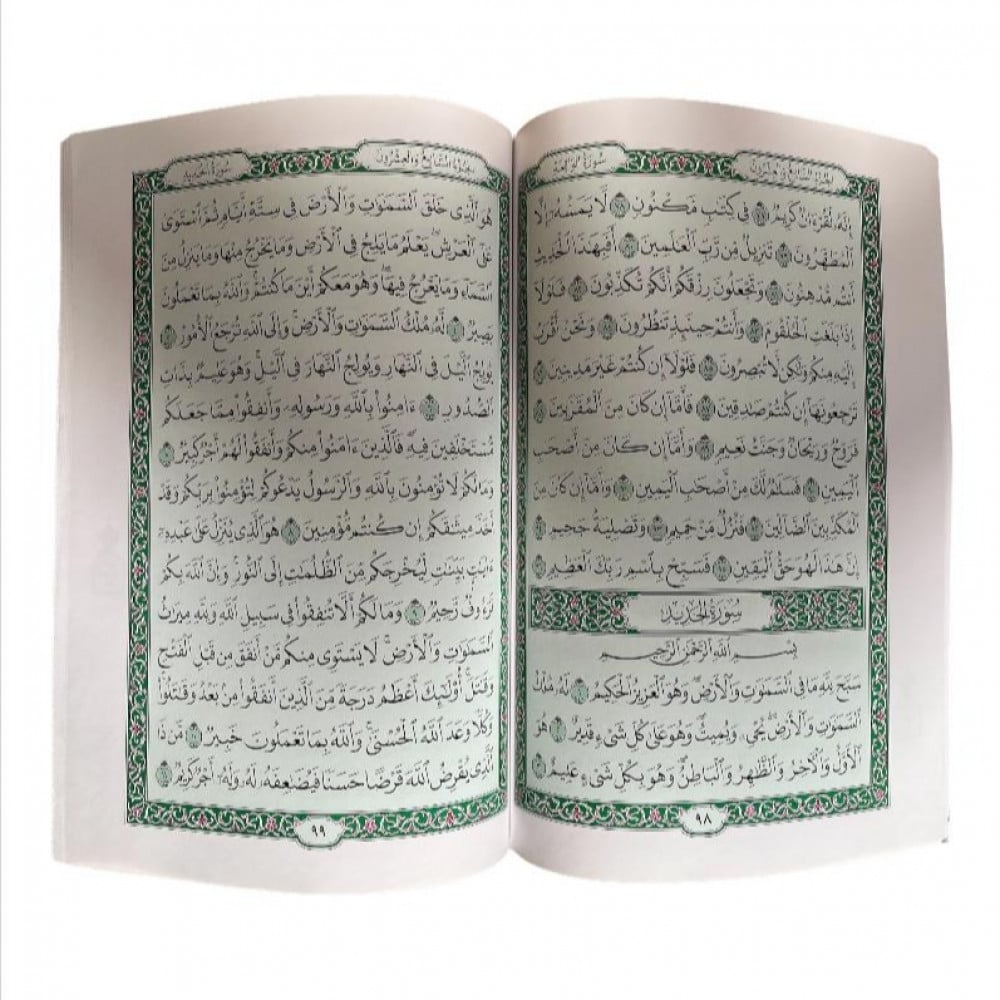 الجزء السابع والعشرون
سورة الواقعة
إِنَّهُۥ لَقُرْءَانٌ كَرِيمٌ فِى كِتَٰبٍ مَّكْنُونٍ لَّا يَمَسُّهُۥٓ إِلَّا
ٱلْمُطَهَّرُونَ تَنزِيلٌ مِّن رَّبِّ ٱلْعَٰلَمِينَ أَفَبِهَٰذَا ٱلْحَدِيثِ
أَنتُم مُّدْهِنُونَ وَتَجْعَلُونَ رِزْقَكُمْ أَنَّكُمْ تُكَذِّبُونَ فَلَوْلَآ
إِذَا بَلَغَتِ ٱلْحُلْقُومَ وَأَنتُمْ حِينَئِذٍ تَنظُرُونَ وَنَحْنُ أَقْرَبُ
إِلَيْهِ مِنكُمْ وَلَٰكِن لَّا تُبْصِرُونَ فَلَوْلَآ إِن كُنتُمْ غَيْرَ مَدِينِينَ
تَرْجِعُونَهَآ إِن كُنتُمْ صَٰدِقِينَ فَأَمَّآ إِن كَانَ مِنَ ٱلْمُقَرَّبِينَ
فَرَوْحٌ وَرَيْحَانٌ وَجَنَّتُ نَعِيمٍ وَأَمَّآ إِن كَانَ مِنْ أَصْحَٰبِ
ٱلْيَمِينِ فَسَلَٰمٌ لَّكَ مِنْ أَصْحَٰبِ ٱلْيَمِينِ وَأَمَّآ إِن كَانَ مِنَ
ٱلْمُكَذِّبِينَ ٱلضَّآلِّينَ فَنُزُلٌ مِّنْ حَمِيمٍ وَتَصْلِيَةُ جَحِيمٍ
إِنَّ هَٰذَا لَهُوَ حَقُّ ٱلْيَقِينِ فَسَبِّحْ بِٱسْمِ رَبِّكَ ٱلْعَظِيمِ
سُورَةُ الحَدِيدِ
بِسْمِ ٱللَّهِ ٱلرَّحْمَٰنِ ٱلرَّحِيمِ
سَبَّحَ لِلَّهِ مَا فِى ٱلسَّمَٰوَٰتِ وَٱلْأَرْضِ وَهُوَ ٱلْعَزِيزُ ٱلْحَكِيمُ لَهُۥ مُلْكُ
ٱلسَّمَٰوَٰتِ وَٱلْأَرْضِ يُحْىِۦ وَيُمِيتُ وَهُوَ عَلَىٰ كُلِّ شَىْءٍ قَدِيرٌ هُوَ
ٱلْأَوَّلُ وَٱلْءَاخِرُ وَٱلظَّٰهِرُ وَٱلْبَاطِنُ وَهُوَ بِكُلِّ شَىْءٍ عَلِيمٌ
٩٨
الجزء السابع والعشرون
سورة الحديد
هُوَ ٱلَّذِى خَلَقَ ٱلسَّمَٰوَٰتِ وَٱلْأَرْضَ فِى سِتَّةِ أَيَّامٍ ثُمَّ ٱسْتَوَىٰ
عَلَى ٱلْعَرْشِ يَعْلَمُ مَا يَلِجُ فِى ٱلْأَرْضِ وَمَا يَخْرُجُ مِنْهَا وَمَا يَنزِلُ مِنَ
ٱلسَّمَآءِ وَمَا يَعْرُجُ فِيهَا وَهُوَ مَعَكُمْ أَيْنَ مَا كُنتُمْ وَٱللَّهُ بِمَا تَعْمَلُونَ
بَصِيرٌ لَّهُۥ مُلْكُ ٱلسَّمَٰوَٰتِ وَٱلْأَرْضِ وَإِلَى ٱللَّهِ تُرْجَعُ ٱلْأُمُورُ
يُولِجُ ٱلَّيْلَ فِى ٱلنَّهَارِ وَيُولِجُ ٱلنَّهَارَ فِى ٱلَّيْلِ وَهُوَ عَلِيمٌۢ بِذَاتِ
ٱلصُّدُورِ ءَامِنُوا۟ بِٱللَّهِ وَرَسُولِهِۦ وَأَنفِقُوا۟ مِمَّا جَعَلَكُم
مُّسْتَخْلَفِينَ فِيهِ فَٱلَّذِينَ ءَامَنُوا۟ مِنكُمْ وَأَنفَقُوا۟ لَهُمْ أَجْرٌ كَبِيرٌ
وَمَا لَكُمْ لَا تُؤْمِنُونَ بِٱللَّهِ وَٱلرَّسُولُ يَدْعُوكُمْ لِتُؤْمِنُوا۟ بِرَبِّكُمْ وَقَدْ
أَخَذَ مِيثَٰقَكُمْ إِن كُنتُم مُّؤْمِنِينَ هُوَ ٱلَّذِى يُنَزِّلُ عَلَىٰ عَبْدِهِۦٓ
ءَايَٰتٍۭ بَيِّنَٰتٍ لِّيُخْرِجَكُم مِّنَ ٱلظُّلُمَٰتِ إِلَى ٱلنُّورِ وَإِنَّ ٱللَّهَ بِكُمْ
لَرَءُوفٌ رَّحِيمٌ وَمَا لَكُمْ أَلَّا تُنفِقُوا۟ فِى سَبِيلِ ٱللَّهِ وَلِلَّهِ مِيرَٰثُ
ٱلسَّمَٰوَٰتِ وَٱلْأَرْضِ لَا يَسْتَوِى مِنكُم مَّنْ أَنفَقَ مِن قَبْلِ ٱلْفَتْحِ
وَقَٰتَلَ أُو۟لَٰٓئِكَ أَعْظَمُ دَرَجَةً مِّنَ ٱلَّذِينَ أَنفَقُوا۟ مِنۢ بَعْدُ وَقَٰتَلُوا۟
وَكُلًّا وَعَدَ ٱللَّهُ ٱلْحُسْنَىٰ وَٱللَّهُ بِمَا تَعْمَلُونَ خَبِيرٌ مَّن ذَا
ٱلَّذِى يُقْرِضُ ٱللَّهَ قَرْضًا حَسَنًا فَيُضَٰعِفَهُۥ لَهُۥ وَلَهُۥٓ أَجْرٌ كَرِيمٌ
٩٩